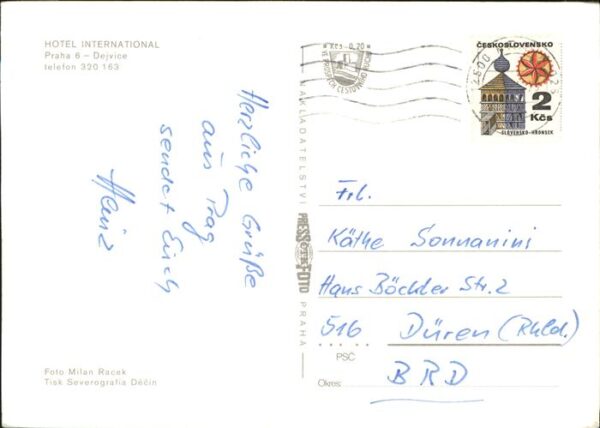 HOTEL INTERNATIONAL
Praha 6 – Dejvice
telefon 320 163
Herzliche Grüße
aus Prag
sendet Euch
Heinz
Foto Milan Racek
Tisk Severografia Děčín
NAKLADATELSTVÍ
PRESSFOTO
PRAHA
Kčs –0,20
ČESKOSLOVENSKO
2
Kčs
SLOVENSKO-HRONSEK
Frl.
Käthe Sonnanini
Hans Böckler Str. 2
516 Düren (Rhld.)
PSČ
BRD
Okres: